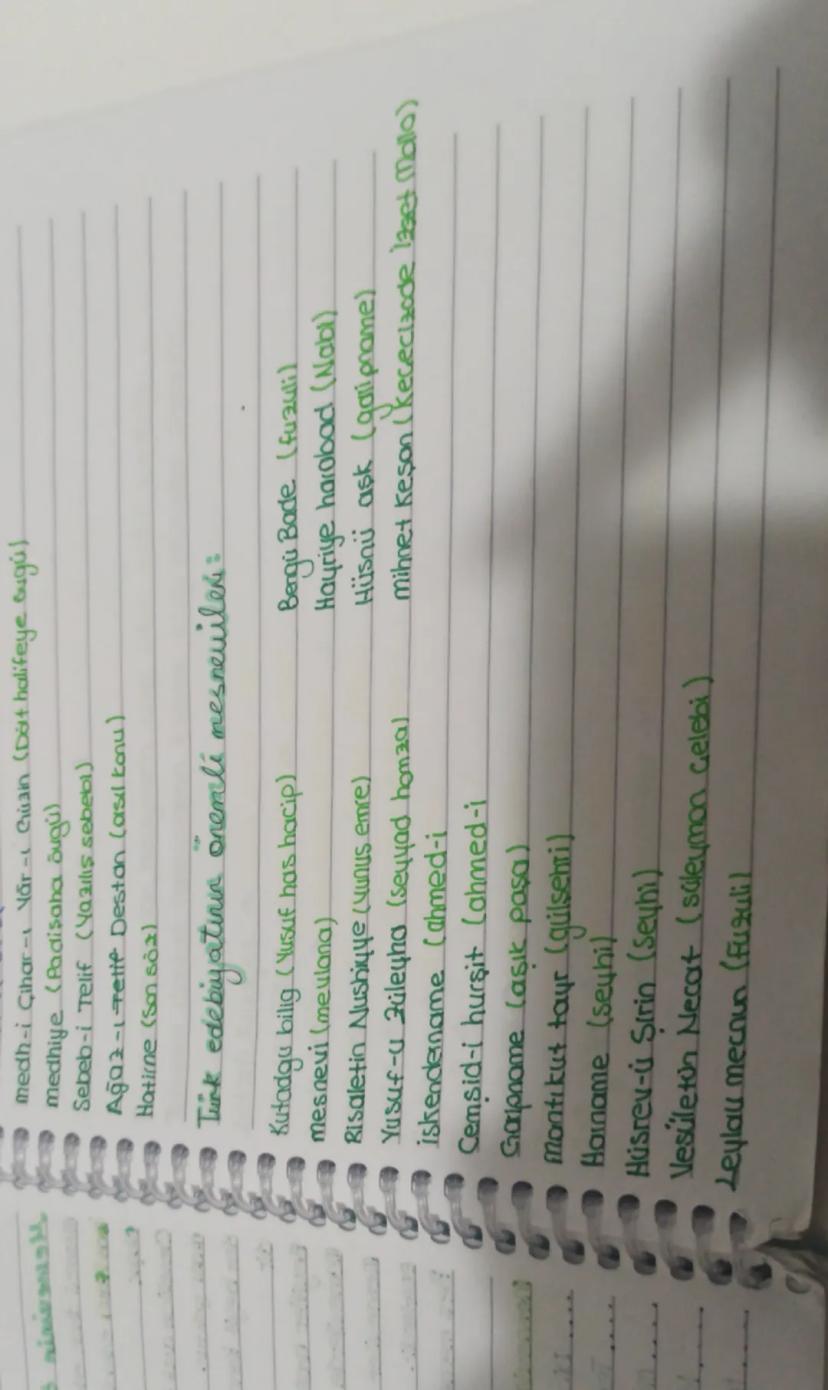 medh-i Çihar-ı Yâr-ı Güzin (Dört halifeye övgü)
medhiye (Padişaha övgü)
Sebeb-i Telif (Yazılış sebebi)
Ağaz-ı Destan (asıl konu)
Hatime (Son söz)
Türk edebiyatının önemli mesnevileri:
Kutadgu bilig (Yusuf has hacip) Bengü Bade (fuzuli)
mesnevi (mevlana) Hayriye harabad (Nabi)
Risaletin Nushiyye (yunus emre) Hüsnü aşk (galipname)
Yusuf-u züleyha (seyyad hamza) mihnet Keşan (kececizade İzzet Molla)
iskendername (ahmed-i
Cemşid-i hurşit (ahmed-i
Garipname (aşık paşa)
mantıkut tayr (gülşehri)
Harname (şeyhi)
Hüsrev-ü Şirin (şeyhi)
Vesületün Necat (süleyman çelebi)
Leylau mecnun (Fuzuli)